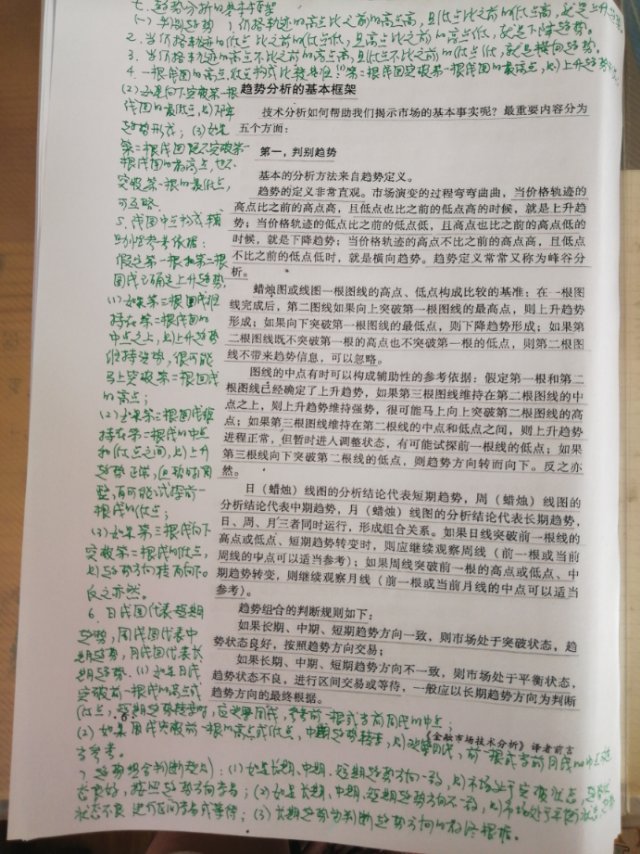 七、趋势分析的基本框架
(一) 判别趋势 1. 价格轨迹的高点比之前的高点高,且低点比之前的低点高,就是上升趋势。
2. 当价格轨迹的低点比之前的低点低,且高点比之前的高点低,就是下降趋势。
3. 当价格轨迹的高点不比之前的高点高,且低点不比之前的低点低,就是横向趋势。
4. 一根线图的高点、低点构成比较基准:(1)第二根线图突破第一根线图的最高点,则上升趋势
(2)如果向下突破第一根
线图的最低点,则下降
趋势形成;(3)如果
第二根线图既不突破第一
根线图的最高点,也不
突破第一根的最低点,
可忽略。
5. 线图中点构成辅
助性参考依据:
假定第一根和第二根
图线已确定上升趋势,
(1)如果第三根图线维
持在第二根线图的
中点之上,则上升趋势
维持强势,很可能
马上突破第二根图线
的高点;
(2)如果第三根图线维
持在第二根线的中点
和低点之间,则上升
趋势正常,但暂时调
整,有可能试探前一
根线的低点;
(3)如果第三根线向下
突破第二根线的低点,
则趋势方向转而向下。
反之亦然。
6. 日线图代表短期
趋势,周线图代表中
期趋势,月线图代表长
期趋势。(1)如果日线
突破前一根线的高点或
低点,短期趋势转变时,应观察周线,参考前一根或当前周线的中点;
(2)如果周线突破前一根的高点或低点,中期趋势转变,则观察月线,前一根或当前月线的中点适
当参考。
7. 趋势组合判断规则:(1)如果长期、中期、短期趋势方向一致,则市场处于突破状态,趋势状
态良好,按照趋势方向交易;(2)如果长期、中期、短期趋势方向不一致,则市场处于平衡状态,趋势
状态不良,进行区间交易或等待;(3)长期趋势为判断趋势方向的最终根据。
趋势分析的基本框架
技术分析如何帮助我们揭示市场的基本事实呢?最重要内容分为
五个方面:
第一,判别趋势
基本的分析方法来自趋势定义。
趋势的定义非常直观。市场演变的过程弯弯曲曲,当价格轨迹的
高点比之前的高点高,且低点也比之前的低点高的时候,就是上升趋
势;当价格轨迹的低点比之前的低点低,且高点也比之前的高点低的
时候,就是下降趋势;当价格轨迹的高点不比之前的高点高,且低点
不比之前的低点低时,就是横向趋势。趋势定义常常又称为峰谷分
析。
蜡烛图或线图一根图线的高点、低点构成比较的基准:在一根图
线完成后,第二图线如果向上突破第一根图线的最高点,则上升趋势
形成;如果向下突破第一根图线的最低点,则下降趋势形成;如果第
二根图线既不突破第一根的高点也不突破第一根的低点,则第二根图
线不带来趋势信息,可以忽略。
图线的中点有时可以构成辅助性的参考依据:假定第一根和第二
根图线已经确定了上升趋势,如果第三根图线维持在第二根图线的中
点之上,则上升趋势维持强势,很可能马上向上突破第二根图线的高
点;如果第三根图线维持在第二根线的中点和低点之间,则上升趋势
进程正常,但暂时进入调整状态,有可能试探前一根线的低点;如果
第三根线向下突破第二根线的低点,则趋势方向转而向下。反之亦
然。
日(蜡烛)线图的分析结论代表短期趋势,周(蜡烛)线图的
分析结论代表中期趋势,月(蜡烛)线图的分析结论代表长期趋势,
日、周、月三者同时运行,形成组合关系。如果日线突破前一根线的
高点或低点、短期趋势转变时,则应继续观察周线(前一根或当前
周线的中点可以适当参考);如果周线突破前一根的高点或低点、中
期趋势转变,则继续观察月线(前一根或当前月线的中点可以适当
参考)。
趋势组合的判断规则如下:
如果长期、中期、短期趋势方向一致,则市场处于突破状态,趋
势状态良好,按照趋势方向交易;
如果长期、中期、短期趋势方向不一致,则市场处于平衡状态,
趋势状态不良,进行区间交易或等待,一般应以长期趋势方向为判断
趋势方向的最终根据。
《金融市场技术分析》译者前言